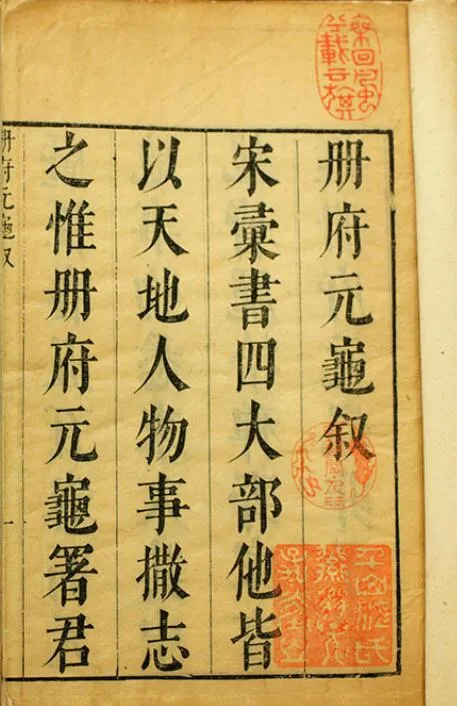 册府元龜叙
宋彙書四大部他皆
以天地人物事撒志
之惟册府元龜署君
册府元龜叙
一